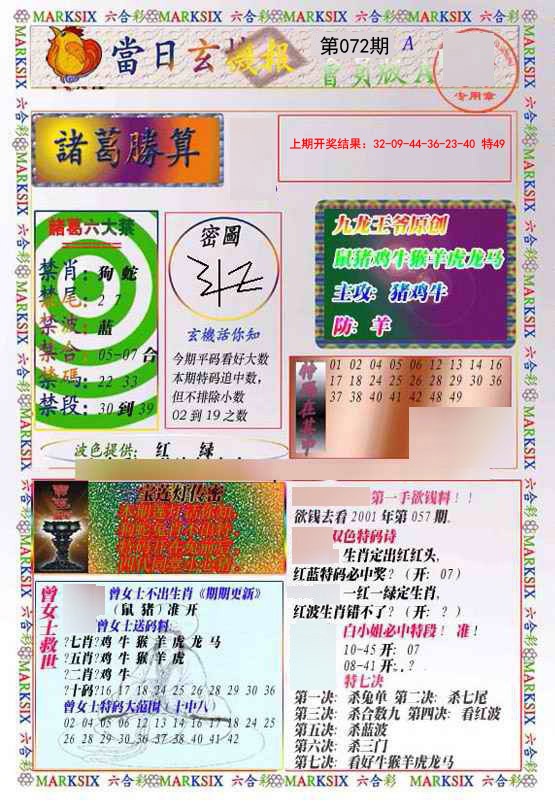 MARKSIX 六合彩 MARKSIX 六合彩 MARKSIX 六合彩 MARKSIX 六合彩
當日玄機報
第072期 A
會員版A
专用章
諸葛勝算
上期开奖结果：32-09-44-36-23-40 特49
諸葛六大禁
禁肖：狗 蛇
禁尾：2 7
禁波：蓝
禁合：05-07 合
禁碼：22 33
禁段：30 到 39
密圖
玄機活你知
今期平码看好大数
本期特码追中数，
但不排除小数
02 到 19 之数
九龙王爷原创
鼠猪鸡牛猴羊虎龙马
主攻：猪鸡牛
防：羊
01 02 04 05 06 12 13 14 16
17 18 24 25 26 28 29 30 36
37 38 40 41 42 48 49
波色提供：红 绿
宝莲灯传密
曾女士救世
曾女士不出生肖《期期更新》
（鼠 猪）准 开
曾女士送码料：
?七肖?鸡 牛 猴 羊 虎 龙 马
?五肖?鸡 牛 猴 羊 虎
?二肖?鸡 牛
?十码?16 17 18 24 25 26 28 29 30 36
曾女士特码大范围（十中八）
02 04 05 06 12 13 14 16 17 18 24 25
26 28 29 30 36 37 38 40 41 42
第一手欲钱料！！
欲钱去看 2001 年第 057 期.
双色特码诗
生肖定出红红头，
红蓝特码必中奖？（开：07）
一红一绿定生肖，
红波生肖错不了？（开：？）
白小姐必中特段！ 准！
10-45 开：07
08-41 开：.？
特七决
第一决：杀兔单 第二决：杀七尾
第三决：杀合数九 第四决：看红波
第五决：杀蓝波
第六决：杀三门
第七决：看好牛猴羊虎龙马
MARKSIX 六合彩 MARKSIX 六合彩 MARKSIX 六合彩 MARKSIX 六合彩